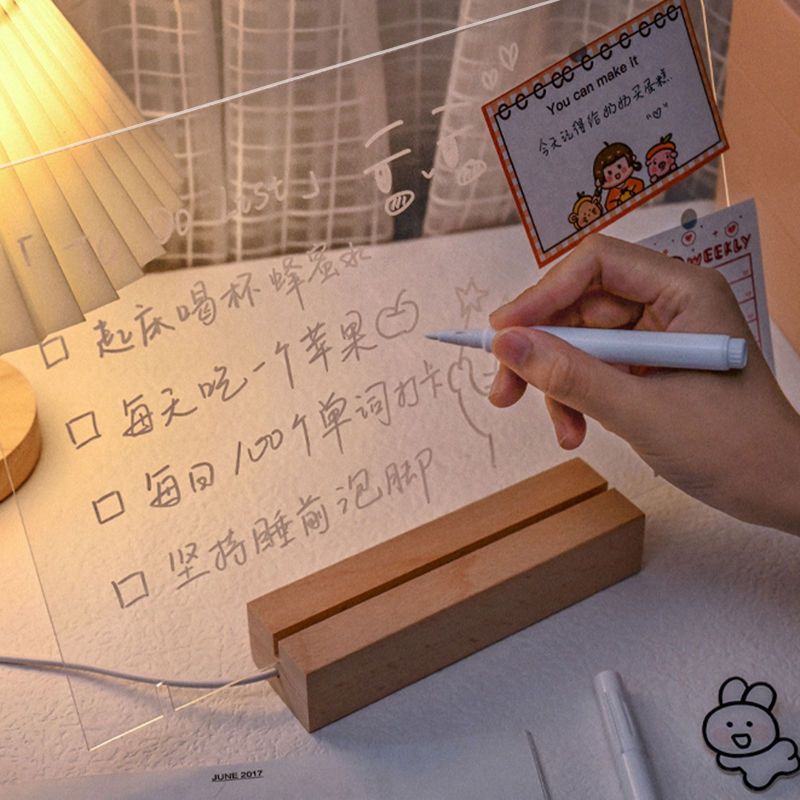 「To Do List」
起床喝杯蜂蜜水
每天吃一个苹果
每日100个单词打卡
坚持睡前泡脚
You can make it
今天记得给奶奶买蛋糕
WEEKLY
JUNE 2017